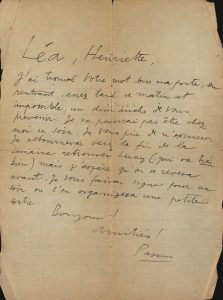 Léa, Henriette,
J'ai trouvé votre mot sous ma porte, en
rentrant, assez tard ce matin et
impossible, un dimanche de vous
prévenir. Je ne pourrai pas être chez
moi ce soir. Je vous prie de m'excuser.
Je retournerai vers la fin de la
semaine retrouver Lucy (qui va très
bien) mais j'espère qu'on se reverra
avant. Je vous ferai signe pour un
soir où l'on organisera une petite
sortie.
Bonjour!
Amitiés!